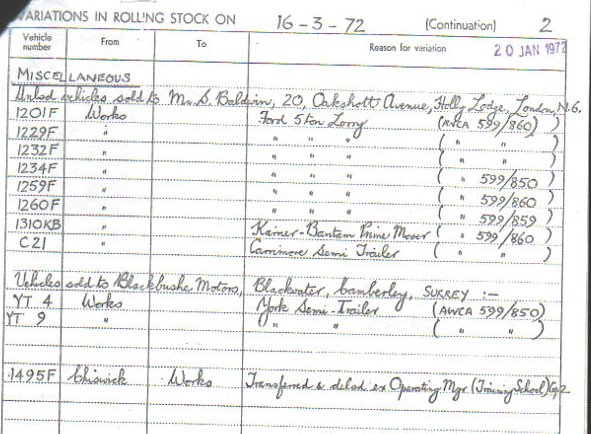 VARIATIONS IN ROLLING STOCK ON 16-3-72 (Continuation) 2
Vehicle number From To Reason for variation 20 JAN 1972
MISCELLANEOUS
Unlad vehicles sold to Mr S. Baldwin, 20, Oakshott Avenue, Holly Lodge, London, N.6.
1201F Works Ford 5 ton Lorry (AWCA 599/860)
1229F " " " " ( " " )
1232F " " " " ( " " )
1234F " " " " ( " 599/850 )
1259F " " " " ( " 599/860 )
1260F " " " " ( " 599/859 )
1310KB " Karrier-Bantam Prime Mover ( " 599/860 )
C21 " Carrimore Semi Trailer ( " " )
Vehicles sold to Blackbushe Motors, Blackwater, Camberley, SURREY :-
YT 4 Works York Semi-Trailer (AWCA 599/850)
YT 9 " " " ( " " )
1495F Chiswick Works Transferred & delsd ex Operating Mgr (Training School) Gp2